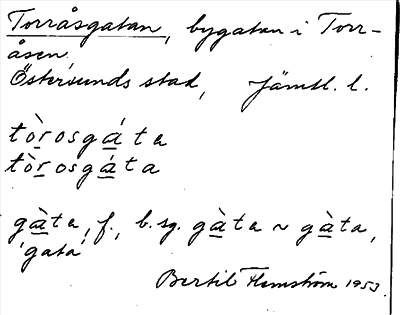 Torråsgatan, bygatan i Torr-
åsen,
Östersunds stad, Jämtl. l.
tòrosgáta
tòrosgáta
gàta, f., b.sg. gàta ~ gàta,
'gata'
Bertil Flemström 1953.